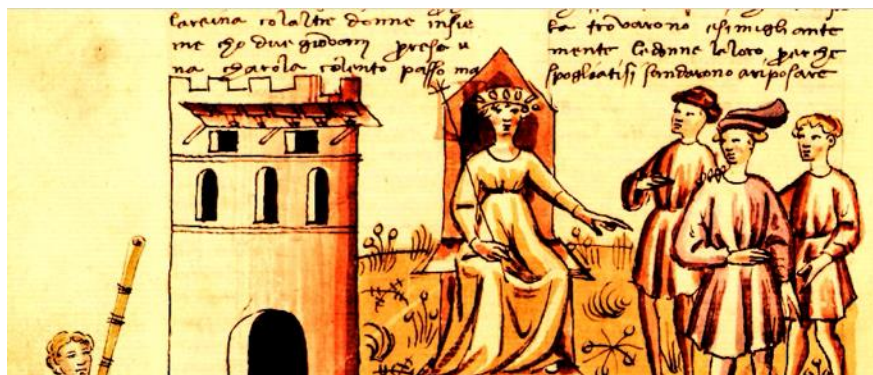 la reina co laltre donne insie
me cho due giovani presa u
na charola colento passo ma
ta trovarono esimigli ante
mente le donne la loro perche
spogliatisi sandarono ariposare